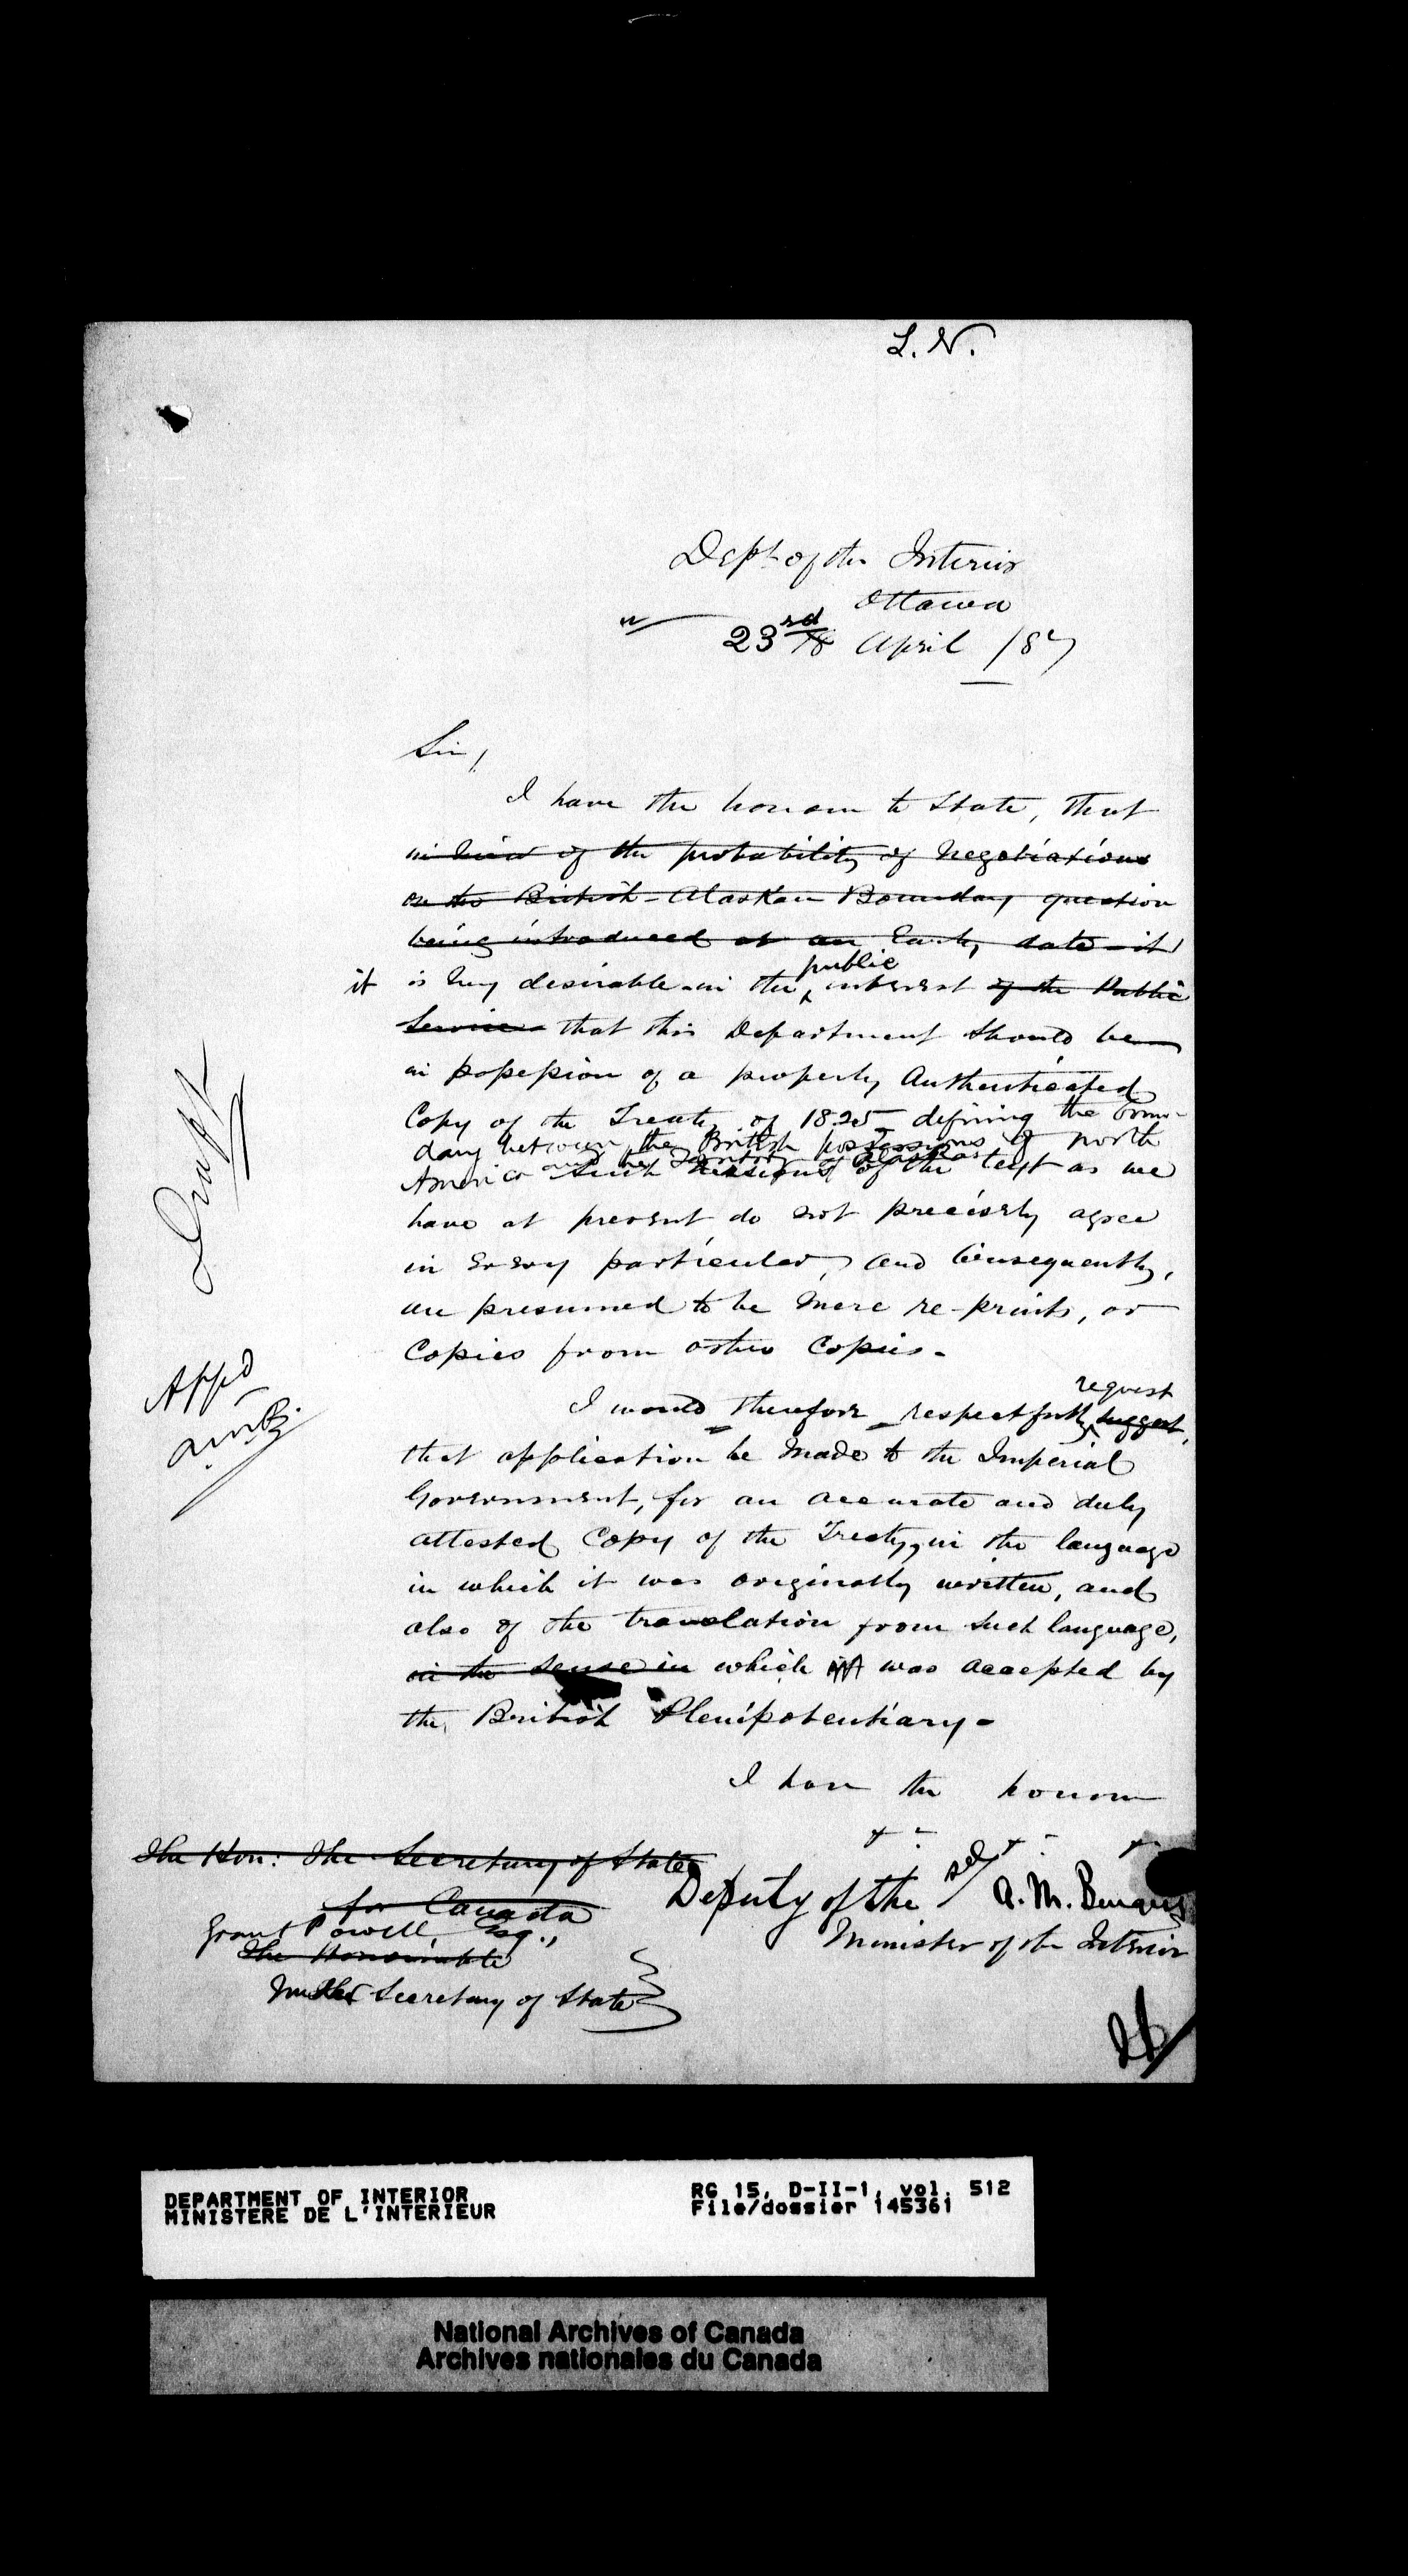 L. N.
Dept of the Interior
Ottawa
23rd 18 April /87
Sir,
I have the honour to state, that
in view of the probability of Negotiations
on the British-Alaskan Boundary question
being introduced at an Early date it
it is very desirable in the public interest of the Public
Service that this Department should be
in possession of a properly Authenticated
Copy of the Treaty of 1825 defining the boun-
dary between the British possessions of North
America and the Territory of Alaska
Such versions of the text as we
have at present do not precisely agree
in Every particular, and Consequently,
are presumed to be mere re-prints, or
Copies from other Copies.
I would therefore respectfully request suggest,
that application be made to the Imperial
Government, for an accurate and duly
attested Copy of the Treaty, in the language
in which it was originally written, and
also of the translation from such language,
in the sense in which it was accepted by
the British Plenipotentiary.
I have the honour
Draft
Appd
A.M.B.
The Hon: The Secretary of State
for Canada
Grant Powell, Esq.,
The Honourable
Under Secretary of State
sgd A. M. Burgess
Deputy of the
Minister of the Interior
DEPARTMENT OF INTERIOR
MINISTERE DE L'INTERIEUR
RG 15, D-II-1, vol. 512
File/dossier 145361
National Archives of Canada
Archives nationales du Canada